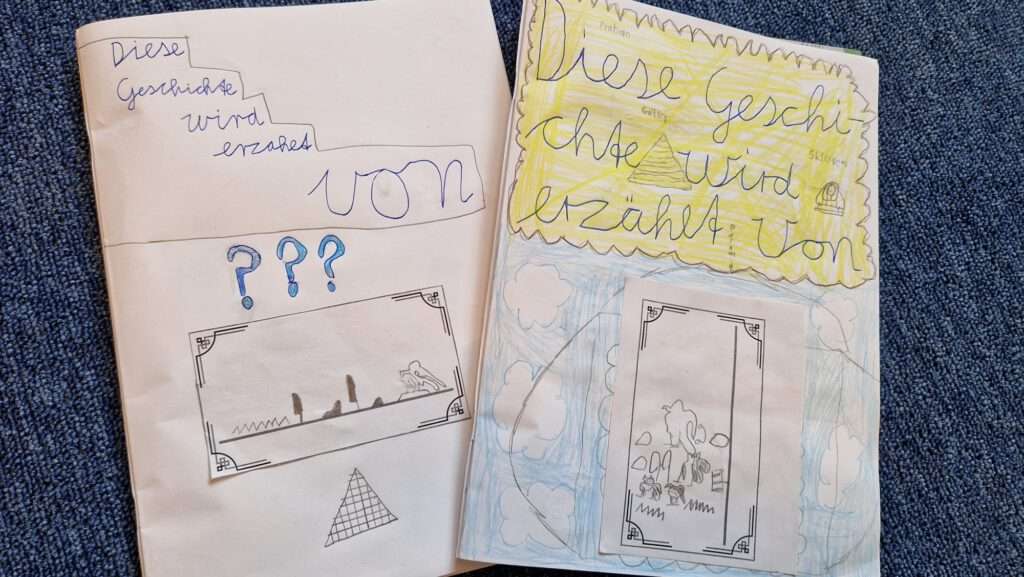 Diese
Geschichte
wird
erzählt
von
???
Diese Geschi-
chte wird
erzählt von